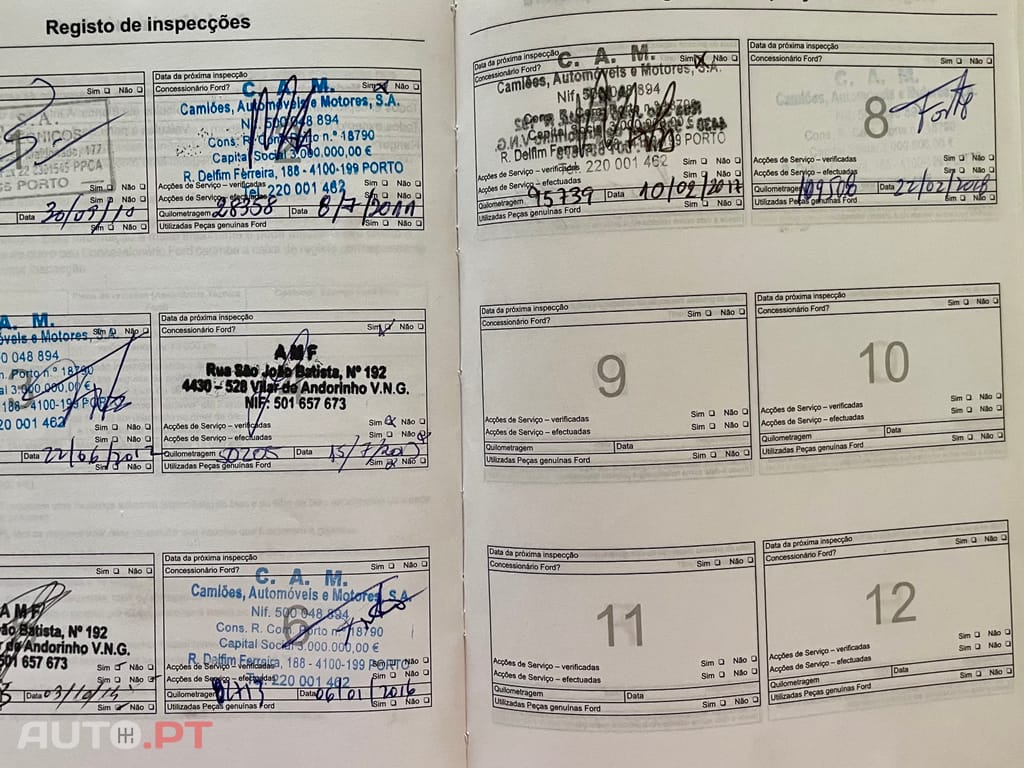 Registo de inspecções
S.A.
Sim Não
1
PORTO
Sim Não
Sim Não
Data 30/09/10
Sim Não
Data da próxima inspecção
Concessionário Ford? Sim Não
C. A. M.
Camiões, Automóveis e Motores, S.A.
Nif. 500 048 894
Cons. R. Com. Porto n.º 18790
Capital Social 3.000.000,00 €
R. Delfim Ferreira, 188 - 4100-199 PORTO
Tel. 220 001 462
Acções de Serviço – verificadas Sim Não
Acções de Serviço – efectuadas Sim Não
Quilometragem 28358 Data 8/7/2011
Utilizadas Peças genuínas Ford Sim Não
A. M.
Sim Não
óveis e Motores, S.A.
00 048 894
m. Porto n.º 18790
al 3.000.000,00 €
188 - 4100-199 PORTO
20 001 462
Sim Não
Sim Não
Data 22/06/2012
Sim Não
Data da próxima inspecção
Concessionário Ford? Sim Não
AMF
Rua São João Batista, Nº 192
4430 - 528 Vilar de Andorinho V.N.G.
NIF: 501 657 673
Acções de Serviço – verificadas Sim Não
Acções de Serviço – efectuadas Sim Não
Quilometragem 50205 Data 15/7/2013
Utilizadas Peças genuínas Ford Sim Não
Sim Não
AMF
ão Batista, Nº 192
r de Andorinho V.N.G.
501 657 673
Sim Não
Sim Não
Data 03/10/14
Sim Não
Data da próxima inspecção
Concessionário Ford? Sim Não
C. A. M.
Camiões, Automóveis e Motores, S.A.
Nif. 500 048 894
6
Cons. R. Com. Porto n.º 18790
Capital Social 3.000.000,00 €
R. Delfim Ferreira, 188 - 4100-199 PORTO
Tel. 220 001 462
Acções de Serviço – verificadas Sim Não
Acções de Serviço – efectuadas Sim Não
Quilometragem Data 06/01/2016
Utilizadas Peças genuínas Ford Sim Não
Data da próxima inspecção
Concessionário Ford? Sim Não
C. A. M.
Camiões, Automóveis e Motores, S.A.
Nif. 500 048 894
Cons. R. Com. Porto n.º 18790
Capital Social 3.000.000,00 €
R. Delfim Ferreira, 188 - 4100-199 PORTO
Tel. 220 001 462
Acções de Serviço – verificadas Sim Não
Acções de Serviço – efectuadas Sim Não
Quilometragem 95739 10/02/2017
Utilizadas Peças genuínas Ford Sim Não
Data da próxima inspecção
Concessionário Ford? Sim Não
C. A. M.
8
Acções de Serviço – verificadas Sim Não
Acções de Serviço – efectuadas Sim Não
Quilometragem 109508 Data 22/02/2018
Utilizadas Peças genuínas Ford Sim Não
Data da próxima inspecção
Concessionário Ford? Sim Não
9
Acções de Serviço – verificadas Sim Não
Acções de Serviço – efectuadas Sim Não
Quilometragem Data
Utilizadas Peças genuínas Ford Sim Não
Data da próxima inspecção
Concessionário Ford? Sim Não
10
Acções de Serviço – verificadas Sim Não
Acções de Serviço – efectuadas Sim Não
Quilometragem Data
Utilizadas Peças genuínas Ford Sim Não
Data da próxima inspecção
Concessionário Ford? Sim Não
11
Acções de Serviço – verificadas Sim Não
Acções de Serviço – efectuadas Sim Não
Quilometragem Data
Utilizadas Peças genuínas Ford Sim Não
Data da próxima inspecção
Concessionário Ford? Sim Não
12
Acções de Serviço – verificadas Sim Não
Acções de Serviço – efectuadas Sim Não
Quilometragem Data
Utilizadas Peças genuínas Ford Sim Não
AUTO.PT